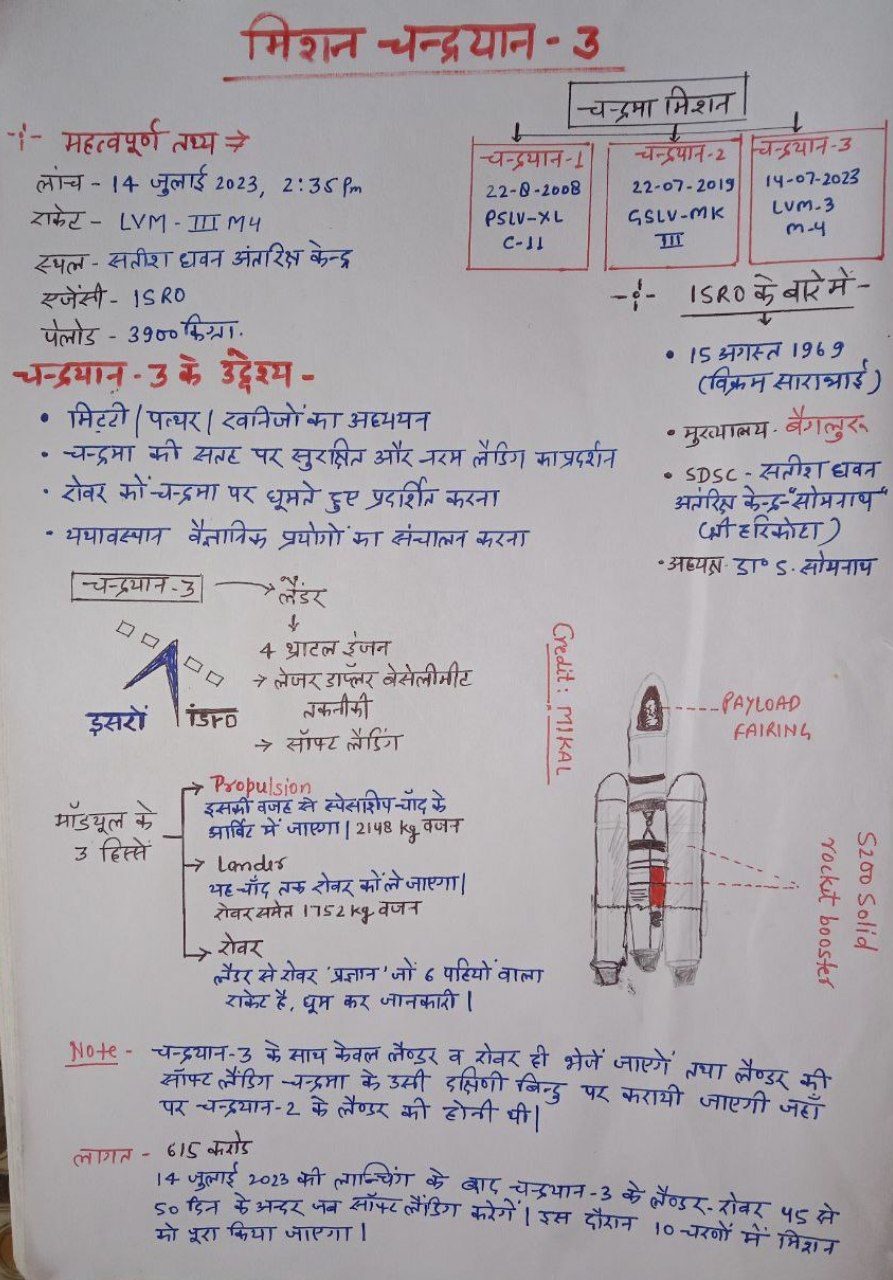 मिशन चन्द्रयान - 3
महत्वपूर्ण तथ्य ⇒
लांच - 14 जुलाई 2023, 2:35 Pm
राकेट - LVM - III M4
स्थल - सतीश धवन अंतरिक्ष केन्द्र
एजेंसी - ISRO
पेलोड - 3900 किग्रा.
चन्द्रमा मिशन
चन्द्रयान-1
22-8-2008
PSLV-XL
C-11
चन्द्रयान-2
22-07-2019
GSLV-MK
III
चन्द्रयान-3
14-07-2023
LVM-3
M-4
ISRO के बारे में -
• 15 अगस्त 1969
(विक्रम साराभाई)
• मुख्यालय - बैंगलुरू
• SDSC - सतीश धवन
अंतरिक्ष केन्द्र-"सोमनाथ"
(श्री हरिकोटा)
• अध्यक्ष - डा० S. सोमनाथ
चन्द्रयान - 3 के उद्देश्य -
• मिट्टी | पत्थर | खनिजों का अध्ययन
• चन्द्रमा की सतह पर सुरक्षित और नरम लैंडिग का प्रदर्शन
• रोवर कों चन्द्रमा पर घूमते हुए प्रदर्शित करना
• यथावस्थान वैज्ञानिक प्रयोगों का संचालन करना
चन्द्रयान-3 → लैंडर
4 थ्राटल इंजन
→ लेजर डॉप्लर बेसेलीमीट
तकनीकी
→ सॉफ्ट लैंडिंग
इसरों isro
Credit: MIKAL
PAYLOAD
FAIRING
S200 Solid
rocket booster
मॉडयूल के
3 हिस्से
→ Propulsion
इसकी वजह से स्पेसशिप चाँद के
आर्बिट में जाएगा | 2148 kg वजन
→ Lander
यह चाँद तक रोवर कों ले जाएगा |
रोवर समेत 1752 kg वजन
→ रोवर
लैंडर से रोवर 'प्रज्ञान' जों 6 पहियों वाला
राकेट है, घूम कर जानकारी |
Note - चन्द्रयान-3 के साथ केवल लैण्डर व रोवर ही भेजें जाएगें तथा लैण्डर की
सॉफ्ट लैंडिंग चन्द्रमा के उसी दक्षिणी बिन्दु पर करायी जाएगी जहाँ
पर चन्द्रयान-2 के लैण्डर की होनी थी |
लागत - 615 करोड
14 जुलाई 2023 की लान्चिंग के बाद चन्द्रयान-3 के लैण्डर-रोवर 45 से
50 दिन के अन्दर जब सॉफ्ट लैंडिंग करेगें | इस दौरान 10 चरणों में मिशन
को पूरा किया जाएगा |